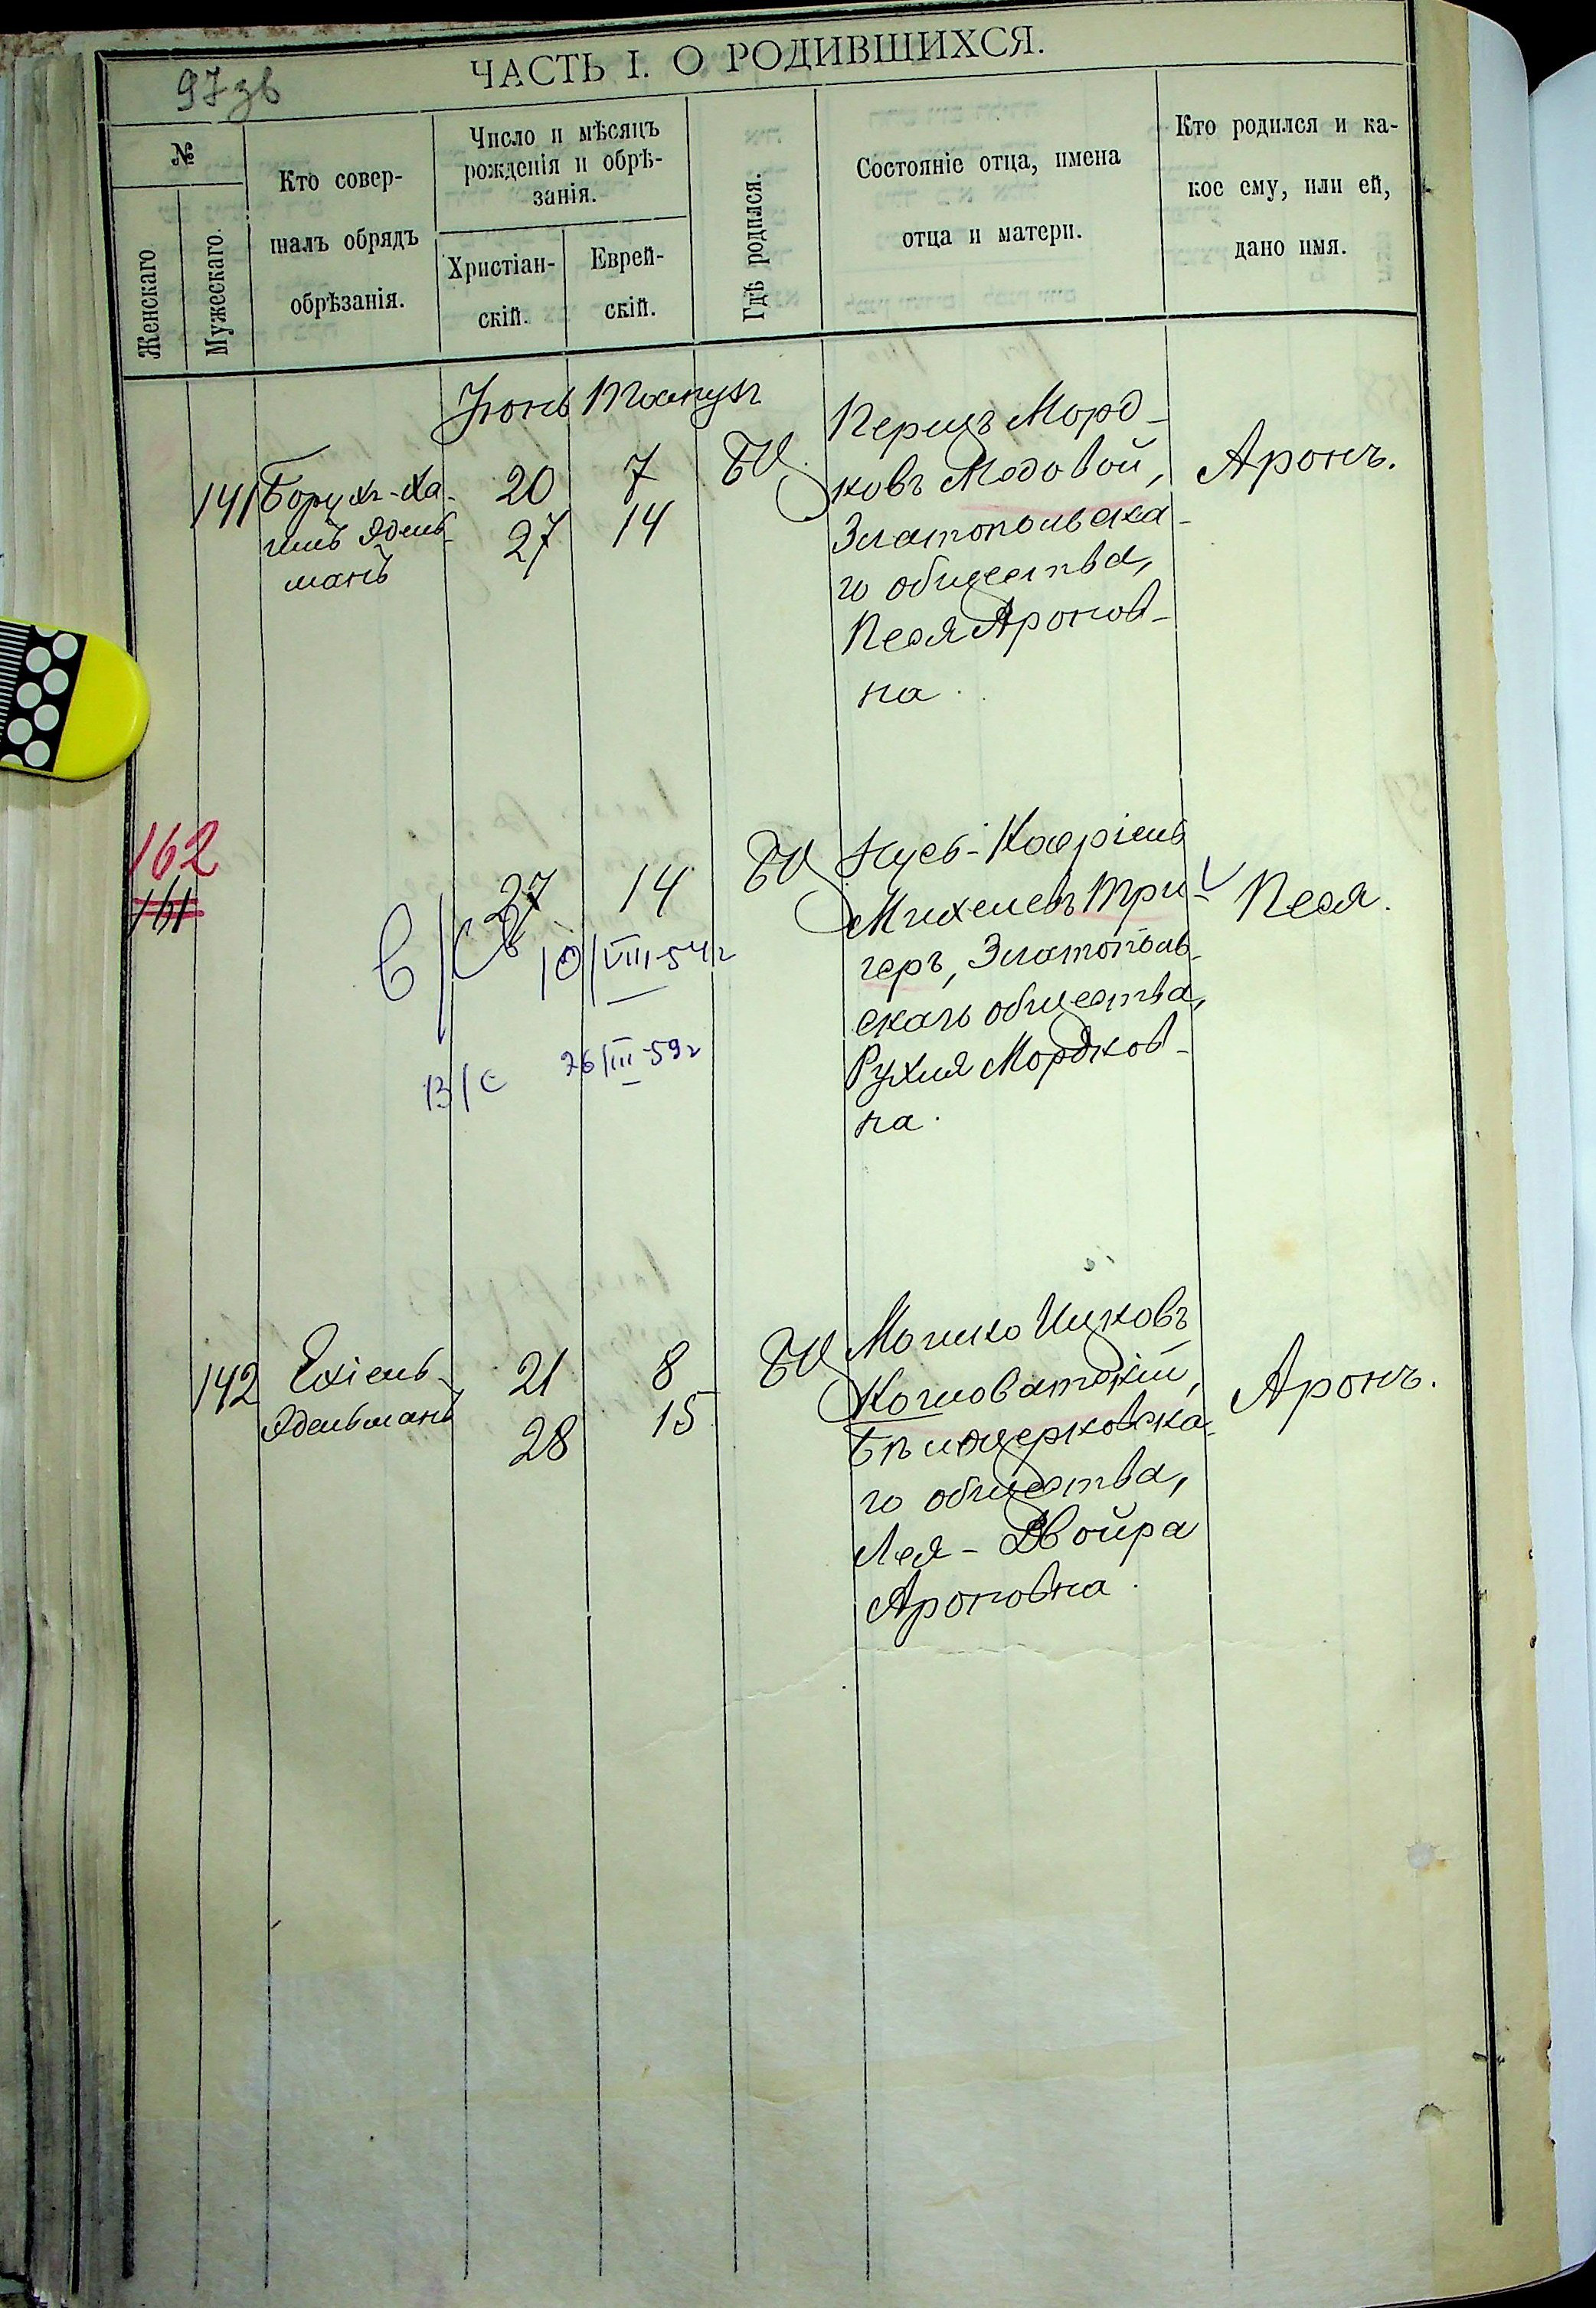 97зв
ЧАСТЬ I. О РОДИВШИХСЯ.
№
Женскаго
Мужескаго.
Кто совер-
шалъ обрядъ
обрѣзанія.
Число и мѣсяцъ
рожденія и обрѣ-
занія.
Христіан-
скій.
Еврей-
скій.
Гдѣ родился.
Состояніе отца, имена
отца и матери.
Кто родился и ка-
кое ему, или ей,
дано имя.
Іюнь Тамузъ
141
Борухъ-Ха-
имъ Эдель-
манъ
20
27
7
14
БЦ
Перецъ Морд-
ковъ Медовой,
Златопольска-
го общества,
Песя Аронов-
на.
Аронъ.
162
161
27
14
БЦ
Нусъ-Кавріель
Михелевъ Три-
геръ, Златополь-
скаго общества,
Рухля Мордков-
на.
Песя.
в/св 10/VIII-54г
в/с 26/III-59г
142
Ехіель
Эдельманъ
21
28
8
15
БЦ
Мошко Ицковъ
Кошоватскій,
Бѣлоцерковска-
го общества,
Лея-Двойра
Ароновна.
Аронъ.